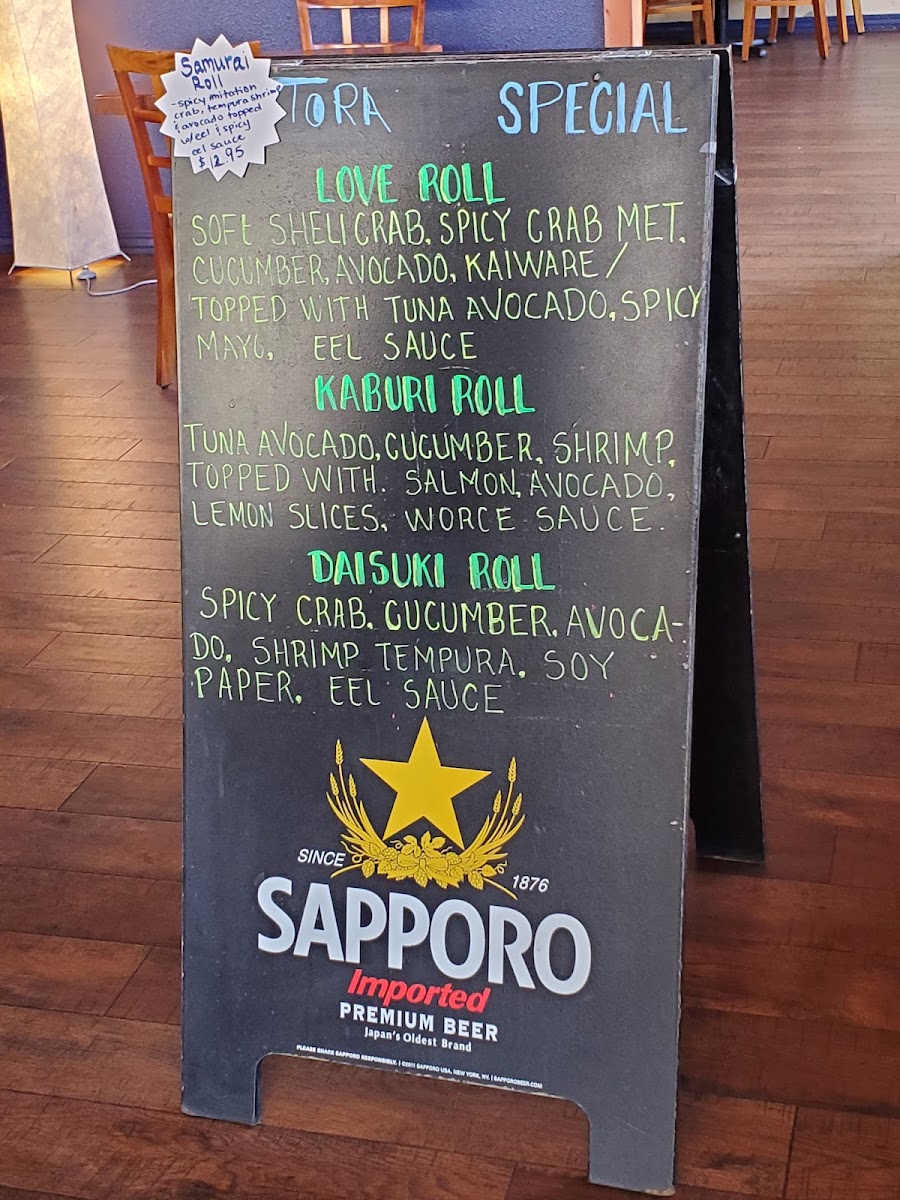 Samurai
Roll
-spicy imitation
crab, tempura shrimp
& avocado topped
w/eel & spicy
eel sauce
$12.95
TORA SPECIAL
LOVE ROLL
SOFT SHELl CRAB. SPICY CRAB MET.
CUCUMBER, AVOCADO, KAIWARE /
TOPPED WITH TUNA AVOCADO, SPICY
MAYO, EEL SAUCE
KABURI ROLL
TUNA AVOCADO, CUCUMBER, SHRIMP,
TOPPED WITH. SALMON, AVOCADO,
LEMON SLICES, WORCE SAUCE.
DAISUKI ROLL
SPICY CRAB. CUCUMBER. AVOCA-
DO. SHRIMP TEMPURA. SOY
PAPER. EEL SAUCE
SINCE 1876
SAPPORO
Imported
PREMIUM BEER
Japan's Oldest Brand
PLEASE SHARE SAPPORO RESPONSIBLY. | ©2011 SAPPORO USA, NEW YORK, NY. | SAPPOROBEER.COM